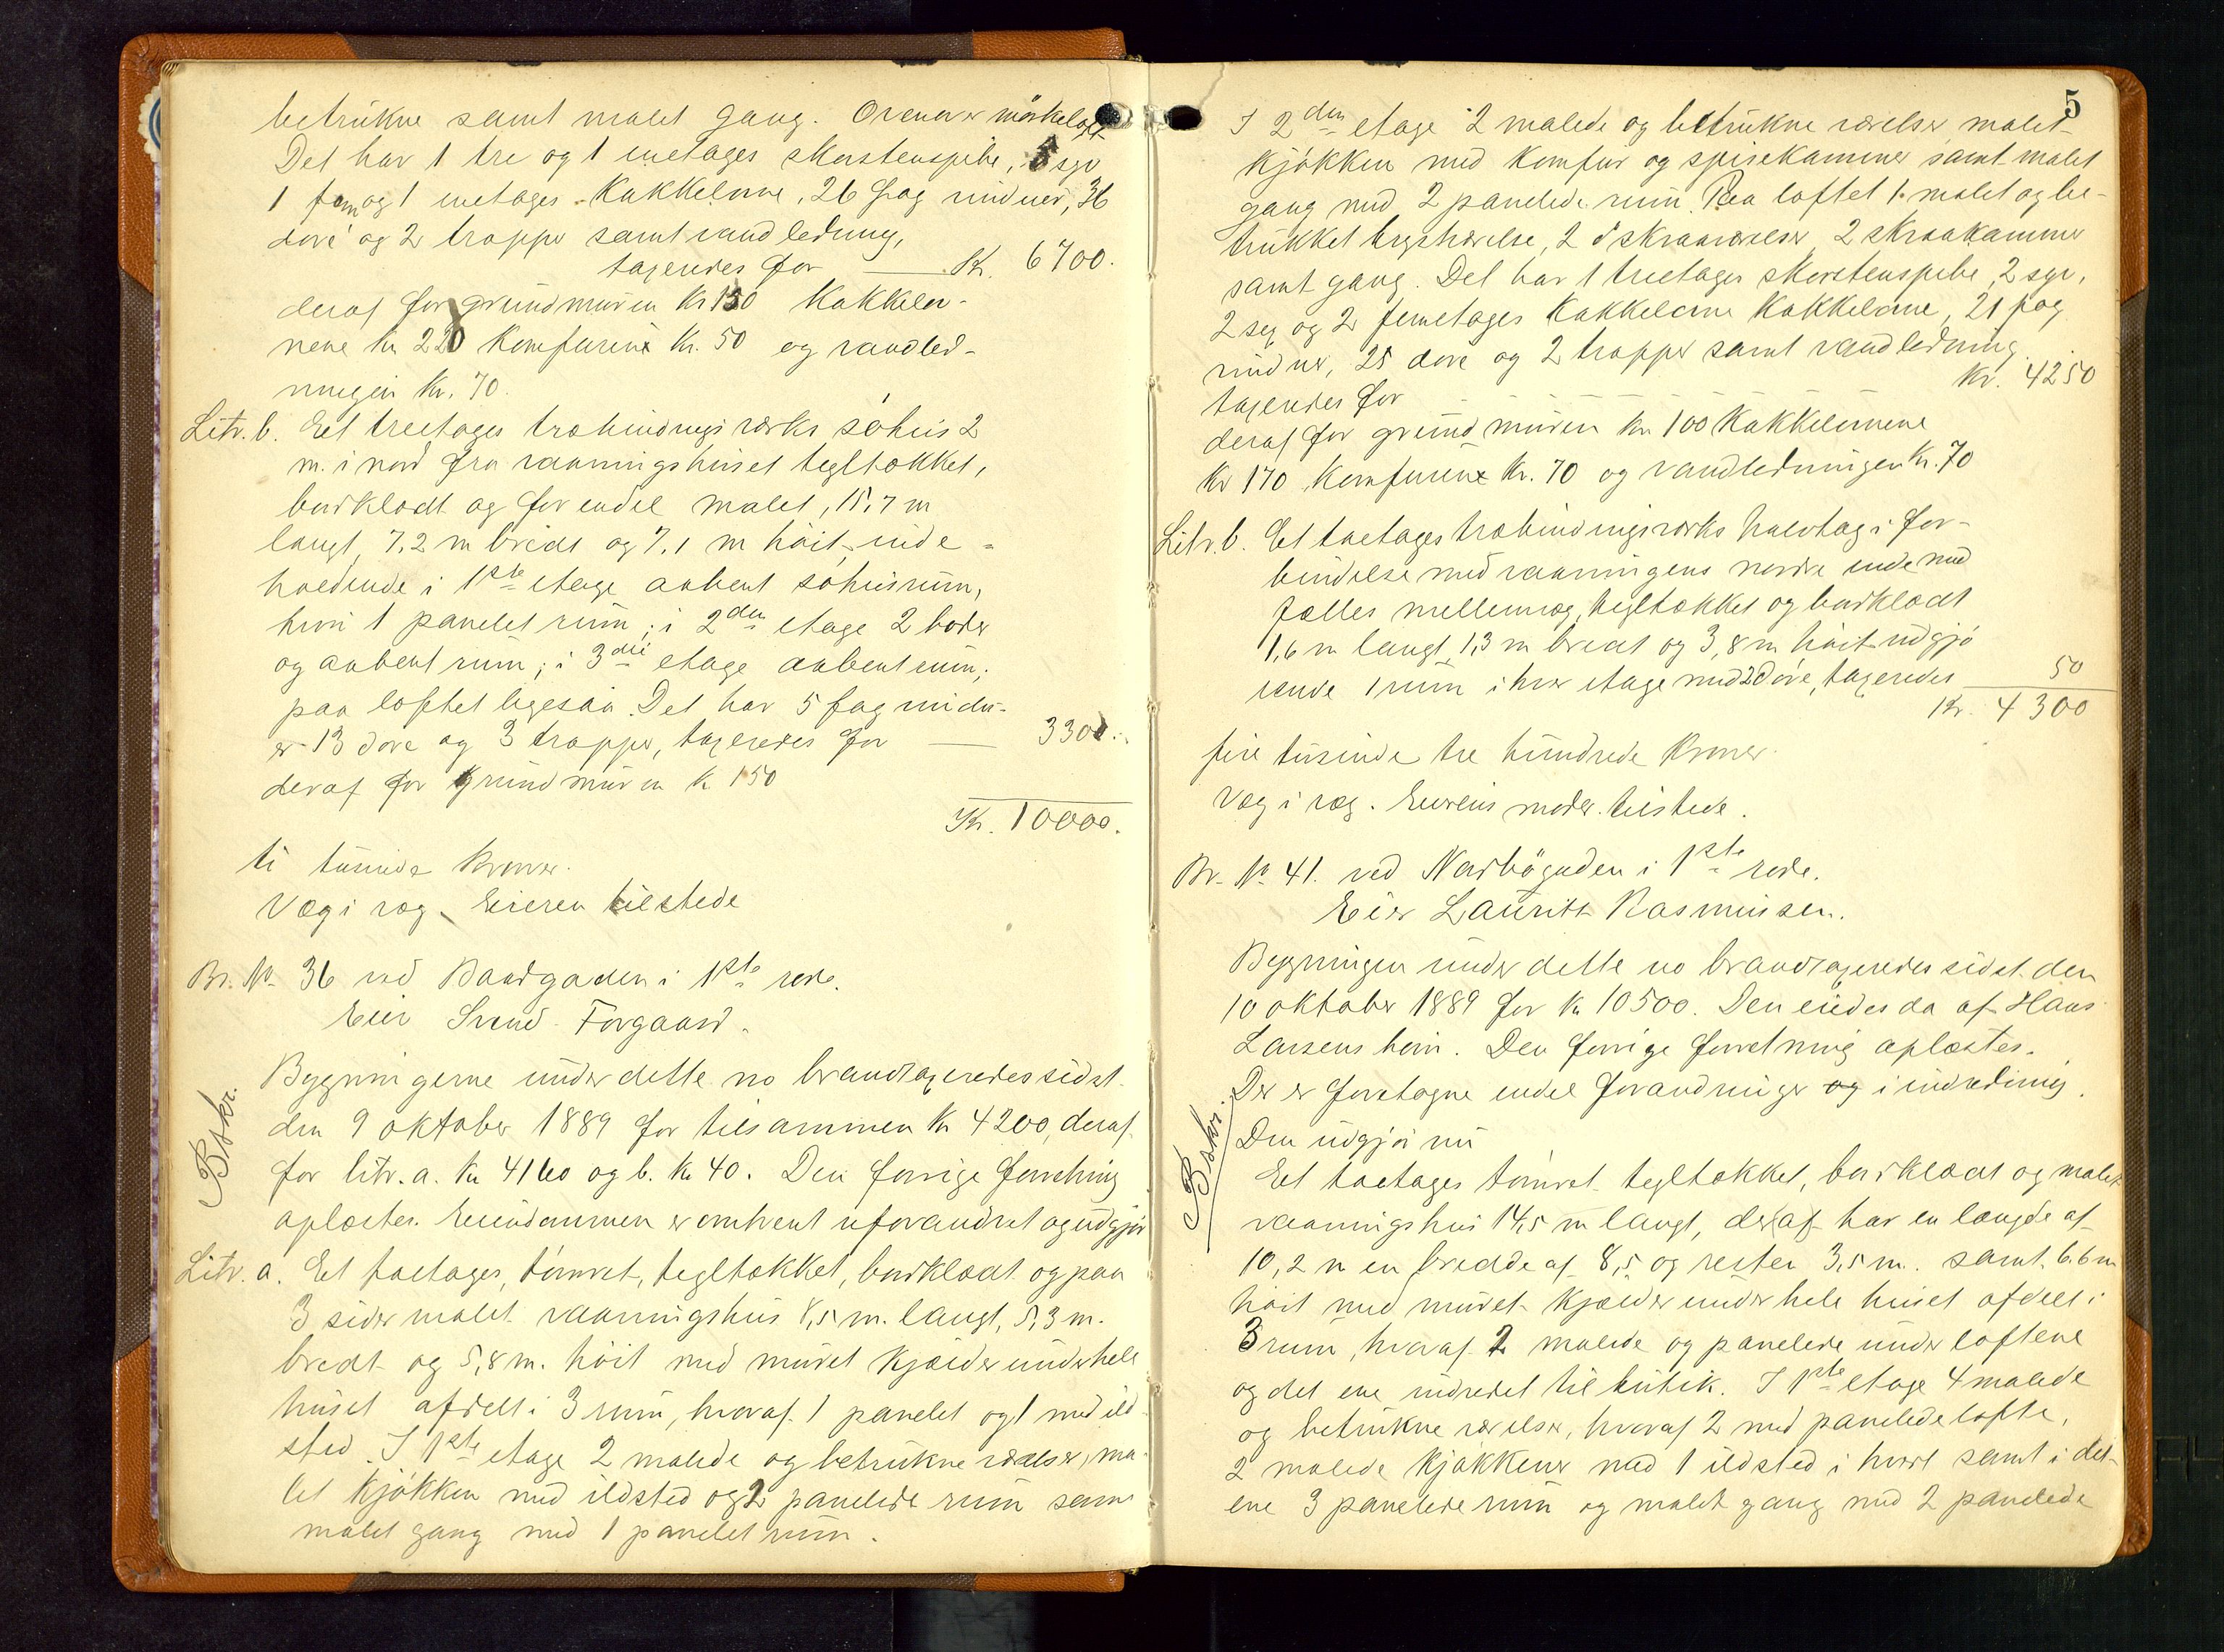 betrukne samt malet gang. Ovenover mörkeloft
Det har 1 tre og 1 enetages skorstenspibe, 5 syv
1 fem og 1 enetages Kakkelovne, 26 fag vinduer, 36
döre og 2 trapper samt vandledning,
taxeredes for Kr. 6700.
deraf for grundmuren Kr 130 Kakkelov-
nene Kr 220 Komfurene Kr. 50 og vandled-
ningen Kr. 70.
Litr. b. Et treetages træbindingsværks söhus 2
m. i nord fra vaaningshuset tegltækket,
bordklædt og for endel malet, 15,7 m
langt, 7,2 m bredt og 7,1 m höit inde-
holdende i 1ste etage aabent söhusrum,
hvori 1 panelet rum; i 2den etage 2 boder
og aabent rum; i 3die etage aabent rum;
paa loftet ligesaa. Det har 5 fag vindu-
er 13 döre og 3 trapper, taxeredes for 3300.
deraf for grundmuren Kr 150
Kr. 10000.
ti tusinde Kroner.
Væg i væg. Eieren tilstede
Br. No 36 ved Baadgaden i 1ste rode.
Eier Svend Forgaard.
Beskr.
Bygningerne under dette no brandtaxeredes sidst
den 9 oktober 1889 for tilsammen Kr 4200, deraf
for litr. a. Kr 4160 og b. Kr 40. Den forrige forretning
oplæstes. Eiendommen er omtrent uforandret og udgjör
Litr. a. Et toetages, tömret, tegltækket, bordklædt og paa
3 sider malet vaaningshus 8,5 m. langt, 5,3 m.
bredt og 5,8 m. höit med muret Kjælder under hele
huset afdelt i 3 rum, hvoraf 1 panelet og 1 med ild-
sted. I 1ste etage 2 malede og betrukne værelser, ma-
let Kjökken med ildsted og 2 panelede rum samt
malet gang med 1 panelet rum.
5
I 2den etage 2 malede og betrukne værelser malet
Kjökken med Komfur og spisekammer samt malet
gang med 2 panelede rum. Paa loftet 1 malet og be-
trukket brystværelse, 2 do skraaværelser, 2 skraakammer
samt gang. Det har 1 treetages skorstenspibe, 2 syv,
2 sex og 2 femetages Kakkelovne Kakkelovne, 21 fag
vinduer, 25 döre og 2 trapper samt vandledning
taxeredes for Kr. 4250
deraf for grundmuren Kr 100 Kakkelovnene
Kr 170 Komfurene Kr. 70 og vandledningen Kr. 70
Litr. b. Et toetages træbindingsværks halvtag i for-
bindelse med vaaningens nordre ende med
fælles mellemvæg, tegltækket og bordklædt
1,6 m langt 1,3 m bredt og 3,8 m höit udgjö
rende 1 rum i hver etage med 2 döre, taxeredes 50
Kr. 4300
fire tusinde tre hundrede Kroner.
Væg i væg. Eierens moder tilstede.
Br. No 41. ved Nordbögaden i 1ste rode.
Eier Lauritz Rasmussen.
Beskr.
Bygningen under dette no brandtaxeredes sidst den
10 oktober 1889 for Kr 10500. Den eiedes da af Hans
Larsens bo. Den forrige forretning oplæstes.
Der er foretagne endel forandringer og i indredning.
Den udgjör nu
Et toetages tömret tegltækket, bordklædt og malet
vaaningshus 14,5 m langt, deraf har en længde af
10,2 m en bredde af 8,5 og resten 3,5 m. samt 6.6 m
höit med muret Kjælder under hele huset afdelt i
3 rum, hvoraf 2 malede og panelede under loftene
og det ene indredet til butik. I 1ste etage 4 malede
og betrukne værelser, hvoraf 2 med panelede lofte,
2 malede Kjökkener med 1 ildsted i hvert samt i det
ene 3 panelede rum og malet gang med 2 panelede